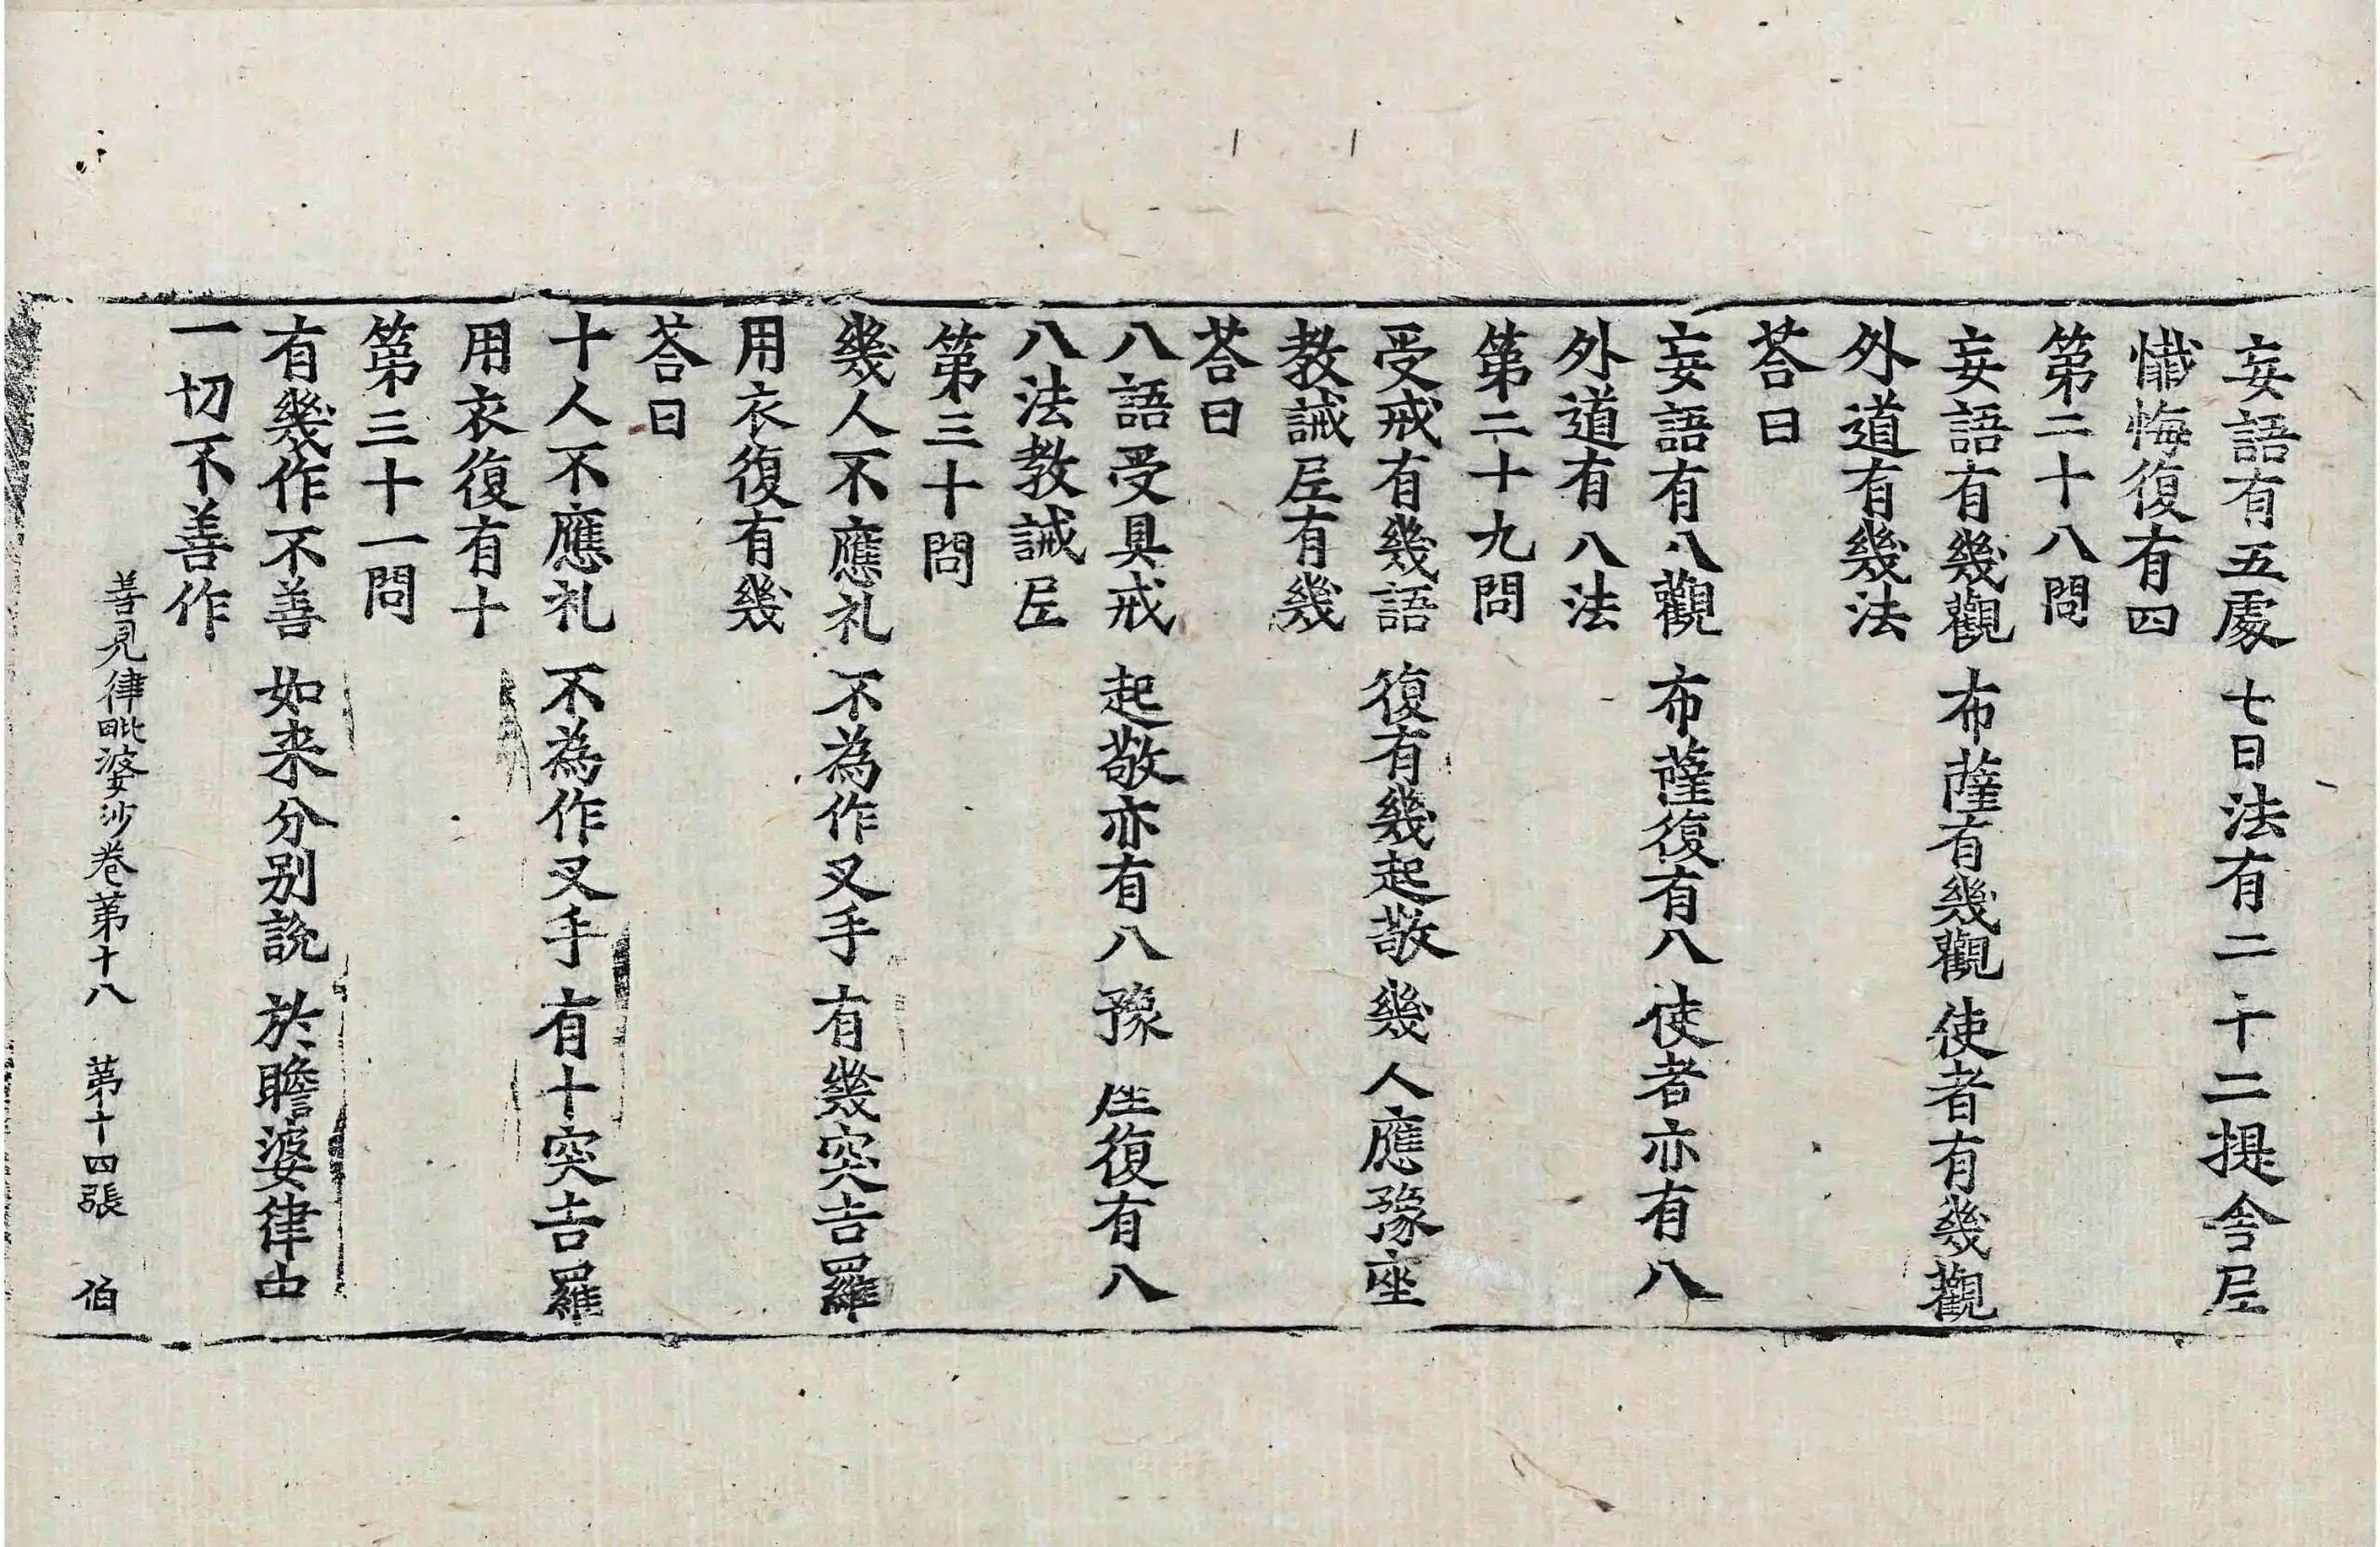 妄語有五處 七日法有二 十二提舍𡰱
懺悔復有四
第二十八問
妄語有幾觀 布薩有幾觀 使者有幾觀
外道有幾法
荅曰
妄語有八觀 布薩復有八 使者亦有八
外道有八法
第二十九問
受戒有幾語 復有幾起敬 幾人應豫座
教誡𡰱有幾
荅曰
八語受具戒 起敬亦有八 豫座復有八
八法教誡𡰱
第三十問
幾人不應礼 不為作叉手 有幾突吉羅
用衣復有幾
荅曰
十人不應礼 不為作叉手 有十突吉羅
用衣復有十
第三十一問
有幾作不善 如来分別說 於瞻婆律中
一切不善作
善見律毗婆沙卷第十八 第十四張 伯